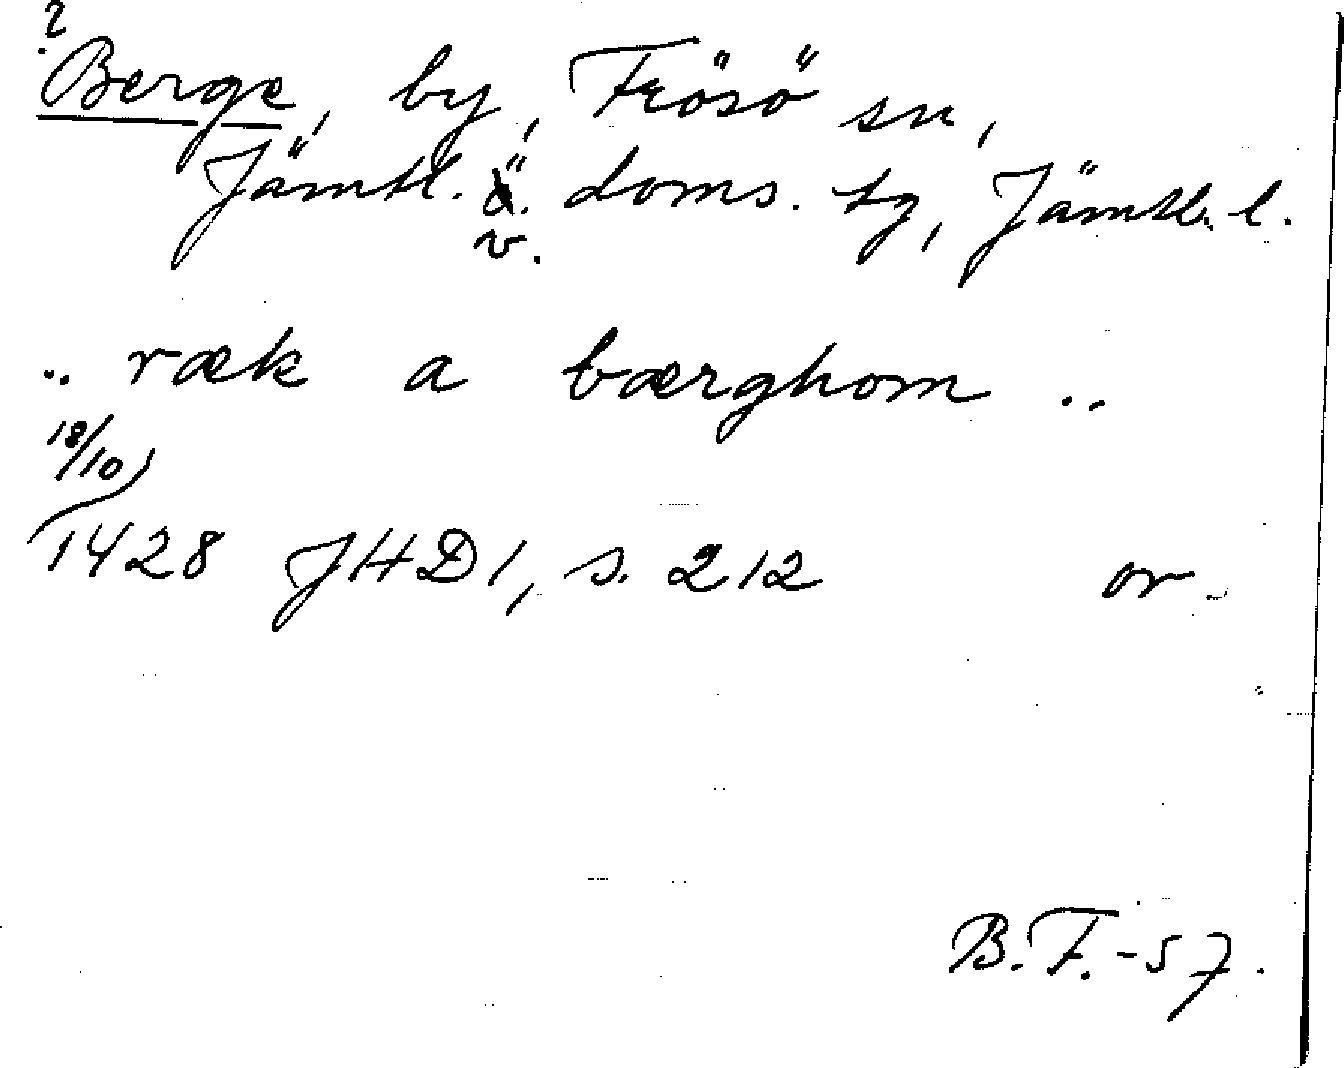 ?
Berge, by, Frösö sn,
Jämtl. ö. doms. tg, Jämtl. l.
v.
.. ræk a bærghom ..
18/10
1428 JHD 1, s. 212 or.
B.F.-57.